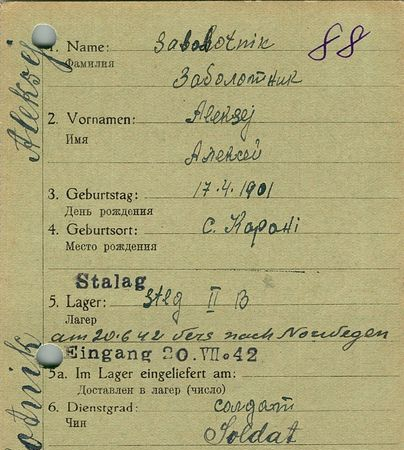 88
1. Name: Sabolotnik
Фамилия
Заболотник
2. Vornamen: Aleksej
Имя
Алексей
3. Geburtstag: 17.4.1901
День рождения
4. Geburtsort: с. Карані
Место рождения
Stalag
5. Lager: Stlg II B
Лагер
am 20.6.42 vers nach Norwegen
Eingang 20.VII.42
5a. Im Lager eingeliefert am:
Доставлен в лагер (число)
6. Dienstgrad: солдат
Чин
Soldat
Aleksej
otnik